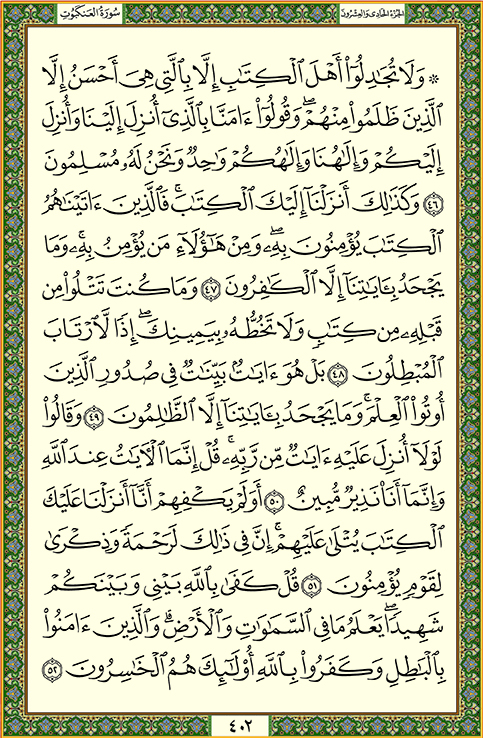 الجزء الحادي والعشرون
سورة العنكبوت
۞ وَلَا تُجَٰدِلُوٓاْ أَهۡلَ ٱلۡكِتَٰبِ إِلَّا بِٱلَّتِي هِيَ أَحۡسَنُ إِلَّا
ٱلَّذِينَ ظَلَمُواْ مِنۡهُمۡۖ وَقُولُوٓاْ ءَامَنَّا بِٱلَّذِيٓ أُنزِلَ إِلَيۡنَا وَأُنزِلَ
إِلَيۡكُمۡ وَإِلَٰهُنَا وَإِلَٰهُكُمۡ وَٰحِدٞ وَنَحۡنُ لَهُۥ مُسۡلِمُونَ
٤٦ وَكَذَٰلِكَ أَنزَلۡنَآ إِلَيۡكَ ٱلۡكِتَٰبَۚ فَٱلَّذِينَ ءَاتَيۡنَٰهُمُ
ٱلۡكِتَٰبَ يُؤۡمِنُونَ بِهِۦۖ وَمِنۡ هَٰٓؤُلَآءِ مَن يُؤۡمِنُ بِهِۦۚ وَمَا
يَجۡحَدُ بِـَٔايَٰتِنَآ إِلَّا ٱلۡكَٰفِرُونَ ٤٧ وَمَا كُنتَ تَتۡلُواْ مِن
قَبۡلِهِۦ مِن كِتَٰبٖ وَلَا تَخُطُّهُۥ بِيَمِينِكَۖ إِذٗا لَّٱرۡتَابَ
ٱلۡمُبۡطِلُونَ ٤٨ بَلۡ هُوَ ءَايَٰتُۢ بَيِّنَٰتٞ فِي صُدُورِ ٱلَّذِينَ
أُوتُواْ ٱلۡعِلۡمَۚ وَمَا يَجۡحَدُ بِـَٔايَٰتِنَآ إِلَّا ٱلظَّٰلِمُونَ ٤٩ وَقَالُواْ
لَوۡلَآ أُنزِلَ عَلَيۡهِ ءَايَٰتٞ مِّن رَّبِّهِۦۚ قُلۡ إِنَّمَا ٱلۡأٓيَٰتُ عِندَ ٱللَّهِ
وَإِنَّمَآ أَنَا۠ نَذِيرٞ مُّبِينٌ ٥٠ أَوَلَمۡ يَكۡفِهِمۡ أَنَّآ أَنزَلۡنَا عَلَيۡكَ
ٱلۡكِتَٰبَ يُتۡلَىٰ عَلَيۡهِمۡۚ إِنَّ فِي ذَٰلِكَ لَرَحۡمَةٗ وَذِكۡرَىٰ
لِقَوۡمٖ يُؤۡمِنُونَ ٥١ قُلۡ كَفَىٰ بِٱللَّهِ بَيۡنِي وَبَيۡنَكُمۡ
شَهِيدٗاۖ يَعۡلَمُ مَا فِي ٱلسَّمَٰوَٰتِ وَٱلۡأَرۡضِۗ وَٱلَّذِينَ ءَامَنُواْ
بِٱلۡبَٰطِلِ وَكَفَرُواْ بِٱللَّهِ أُوْلَٰٓئِكَ هُمُ ٱلۡخَٰسِرُونَ ٥٢
٤٠٢